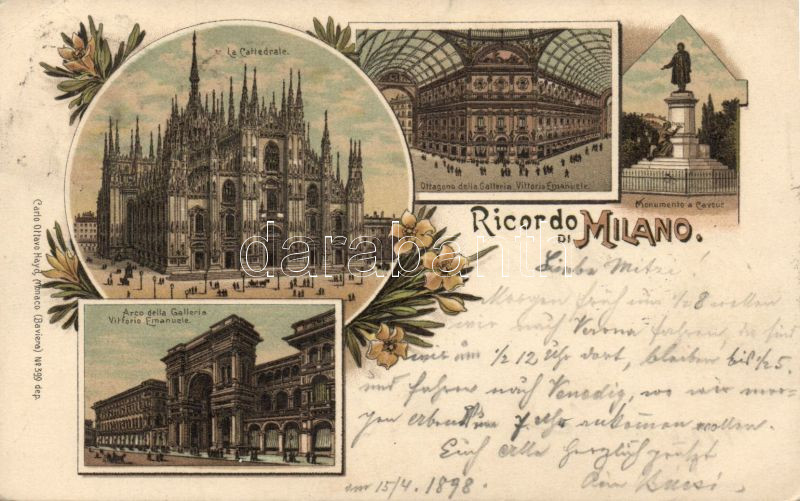 La Cattedrale.
Ottagono della Galleria Vittorio Emanuele.
Monumento a Cavour
Ricordo
DI MILANO.
Carlo Ottavo Hayd, Monaco (Baviera) Nº 399 dep.
Arco della Galleria
Vittorio Emanuele.
darabanth.com
Liebe Mitzi!
Morgen früh um 1/2 8 wollen
wir nach Verona fahren, da sind
wir um 1/2 12 Uhr dort, bleiben bis 1/2 5.
und fahren nach Venedig, wo wir mor-
gen abend um 7 Uhr ankommen wollen.
Euch alle herzlich grüsst
am 15/4. 1898.